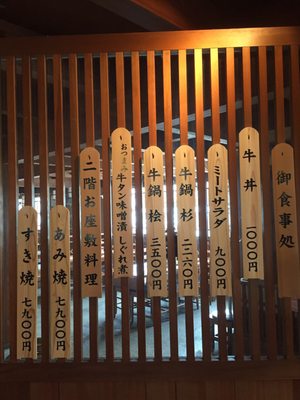 御食事処
牛丼 一〇〇〇円
ミートサラダ 九〇〇円
牛鍋 杉 二二六〇円
牛鍋 桧 三五〇〇円
おつまみ 牛タン味噌漬 しぐれ煮
二階お座敷料理
あみ焼 七九〇〇円
すき焼 七九〇〇円